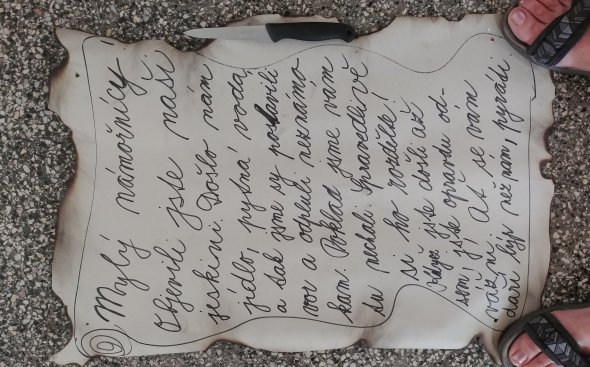 Mylý námořnícy
Objevili jste naši
jeskini. Došlo nám
jídlo, pytná voda,
a tak jsme sy postavili
vor a odpluli neznámo
kam. Poklad jsme vám
tu nechali. Spravedlivě
si ho rozdělte!
jste došli až
sem, jste opravdu od-
vážní! Ať se vám
daří lýp než nám, pyráti